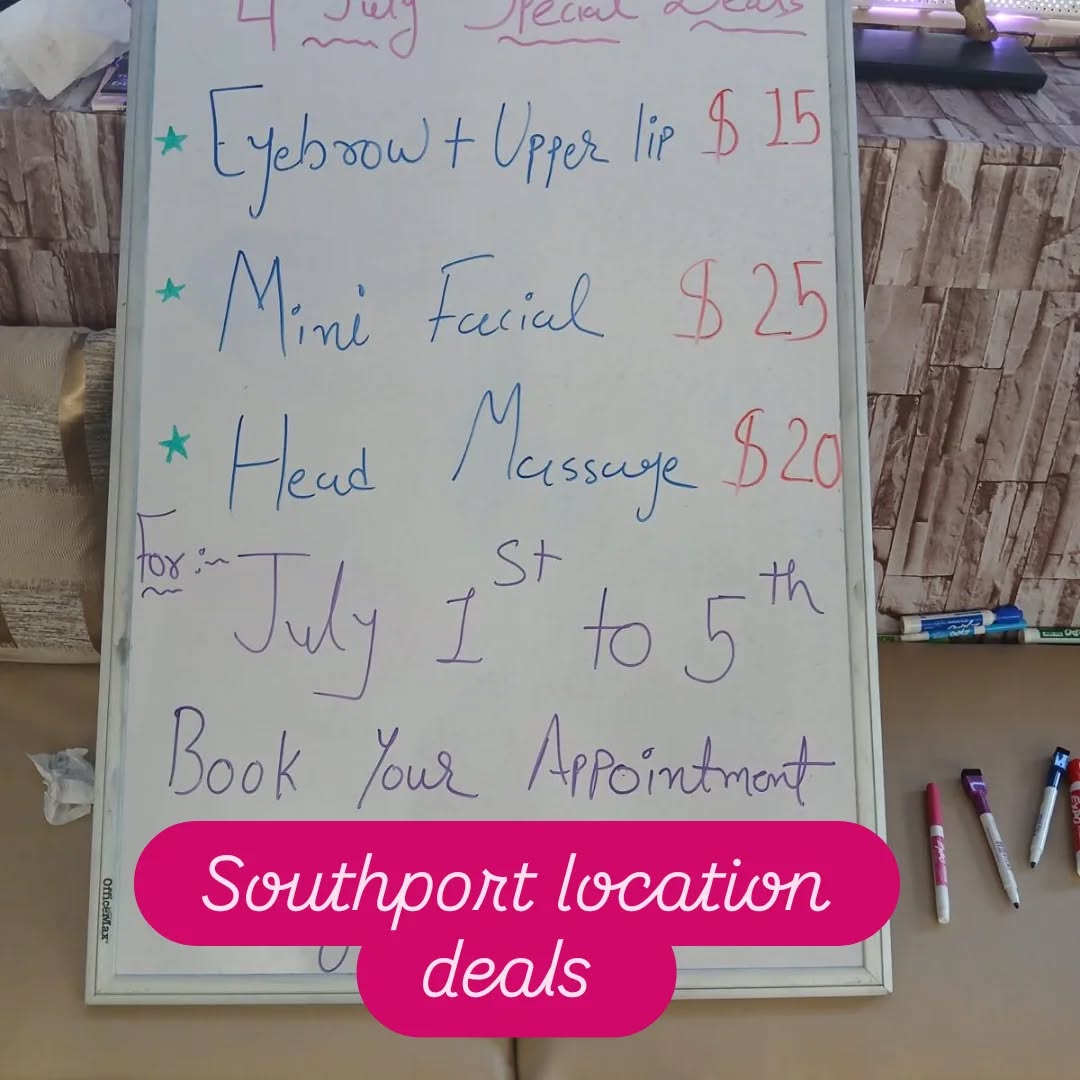 4 July Special Deals
Eyebrow + Upper lip $ 15
Mini Facial $ 25
Head Massage $20
For:~
July 1st to 5th
Book Your Appointment
Southport location
deals
OfficeMax